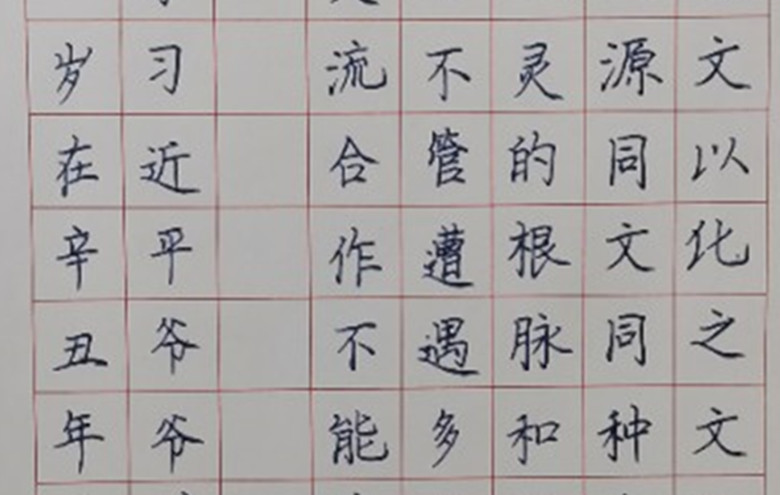 文以化之文
源同文同种
灵的根脉和
不管遭遇多
流合作不能
习近平爷爷
岁在辛丑年